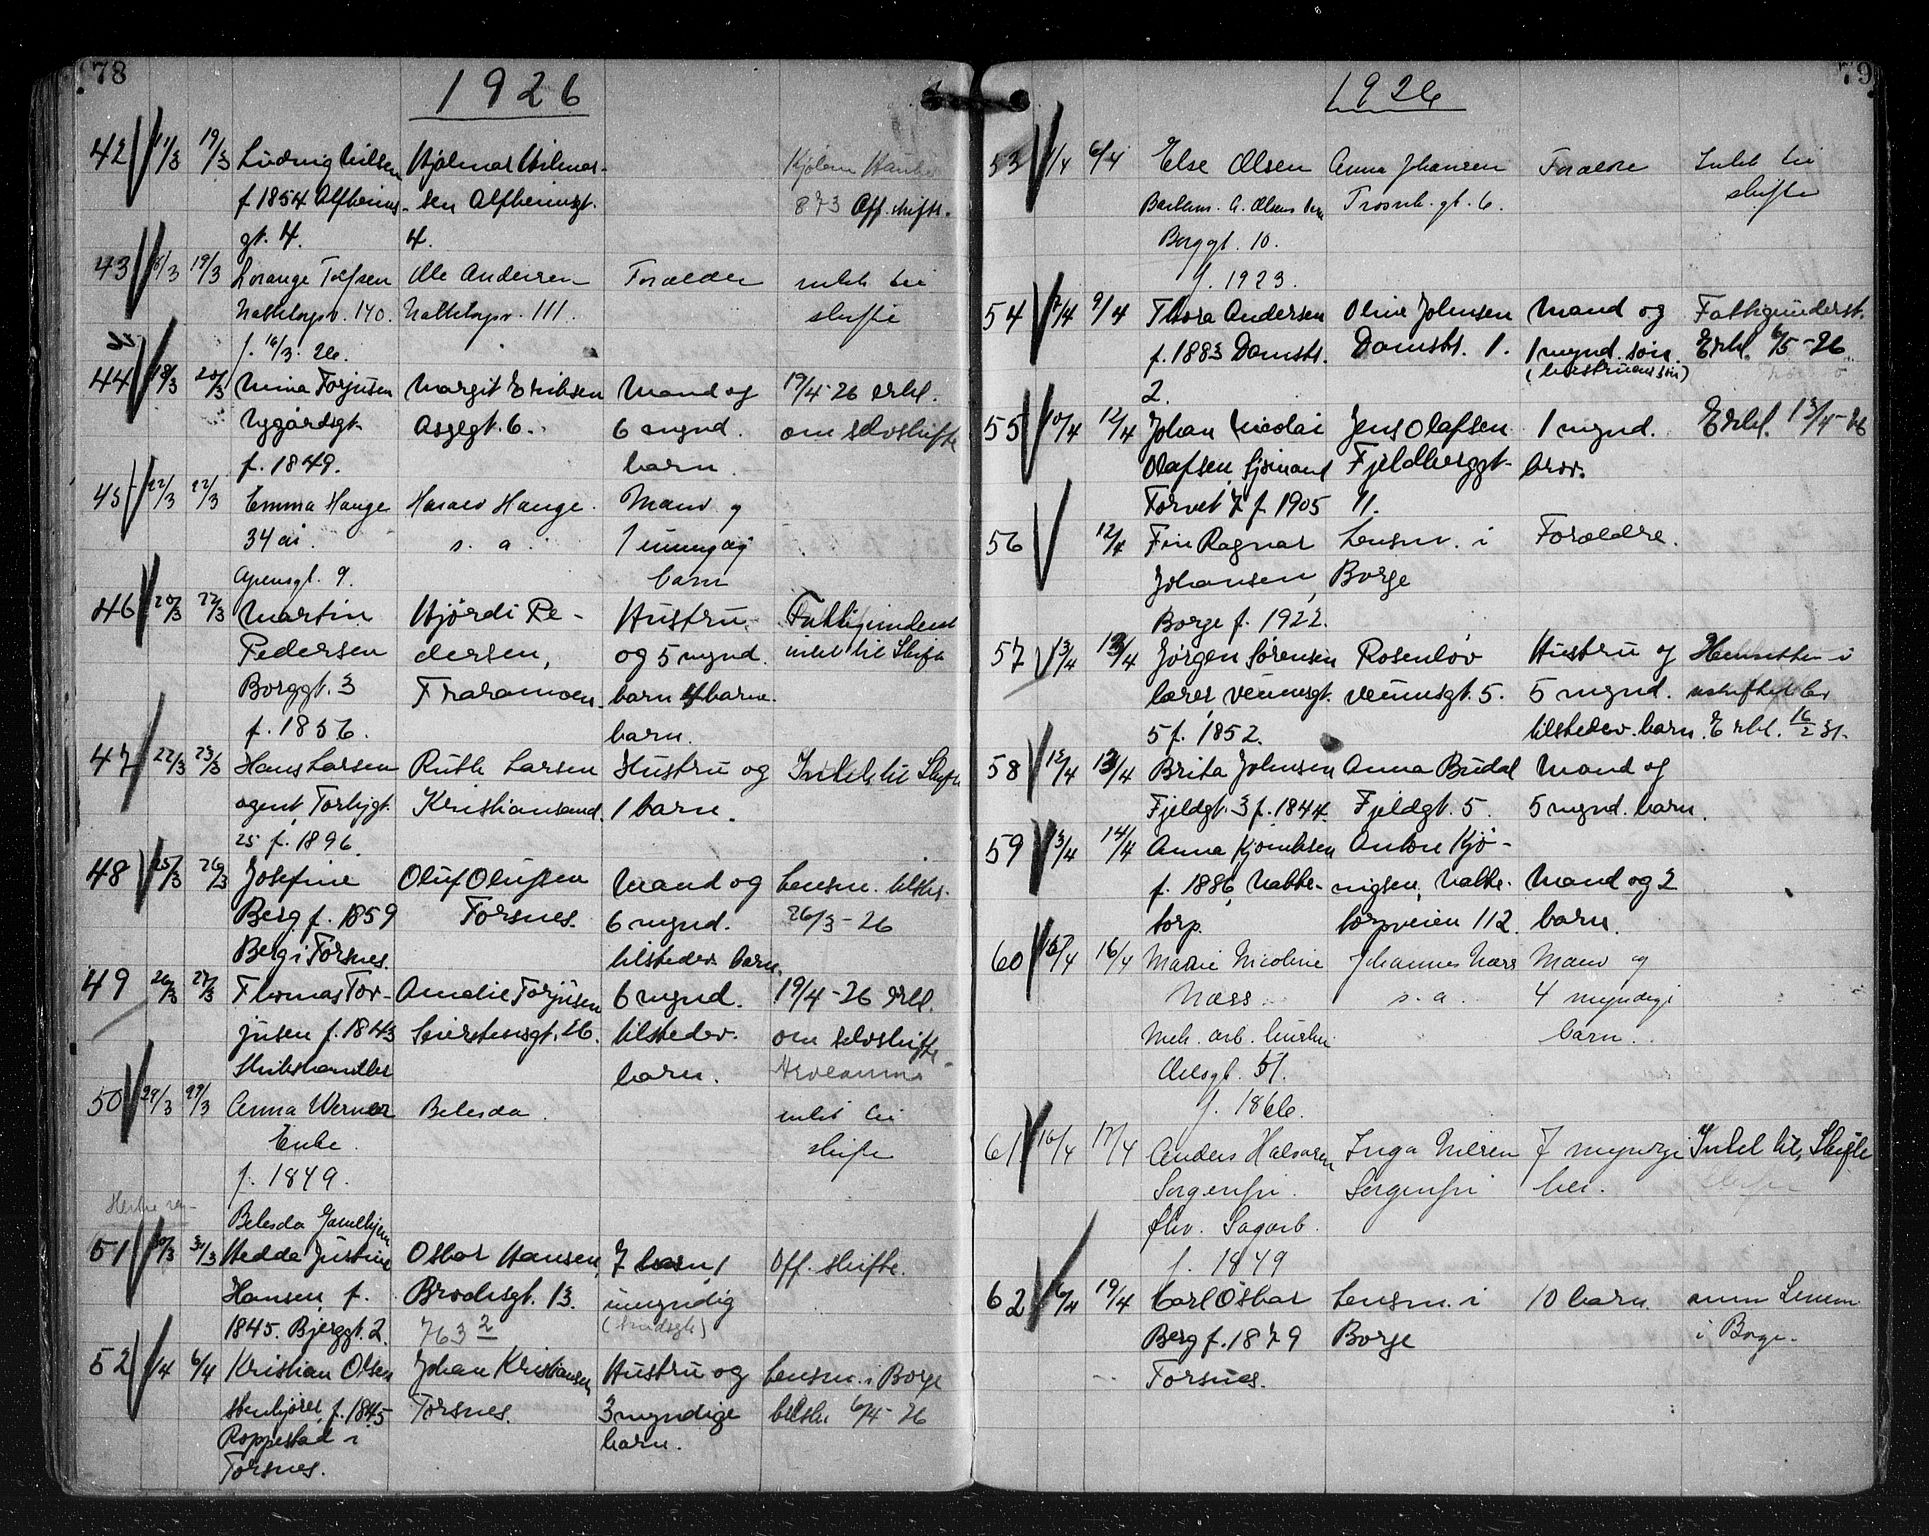 78
1926
42 11/3 19/3 Ludvig Nilsen Hjalmar Hilmar- Kjølem
f 1854 Alfheims- sen Alfheimsgt. 873 Off. skifte.
gt. 4. 4.
43 18/3 19/3 Lorange Tolfsen Ole Andersen Forælder intet til
Nabbetorpv. 140. Nabbetorpv. 111. skifte
f. 16/3. 26.
44 18/3 20/3 Mina Torjusen Margit Eriksen Mand og 19/4-26 erkl.
Nygårdsgt. Aasgegt. 6. 6 mynd. om selvskifte
f. 1849. barn.
45 22/3 22/3 Emma Hauge Harald Hauge. Mand og
34 år. s. a. 1 umyndig
Apenesgt. 9. barn
46 20/3 22/3 Martin Hjørdi Pe- Hustru Fattigunderst
Pedersen dersen, og 5 mynd. intet til Skifte
Borggt. 3 Fraramoen. barn 4 barne-
f. 1856. barn.
47 22/3 23/3 Hans Larsen Ruth Larsen Hustru og Intet til Skifte
agent, Torhjgt. Kristiansand. 1 barn.
25 f. 1896.
48 25/3 26/3 Josefine Oluf Olufsen Mand og Lensm. tilsk.
Berg f. 1859 Torsnes. 6 mynd. 26/3-26
Berg i Torsnes. tilstedev. barn.
49 26/3 27/3 Thomas Tor- Amalie Torjusen 6 mynd. 19/4-26 erkl.
jusen f. 1843 Seierstensgt. 26. tilstedev. om selvskifte
Skibshandler barn.
50 29/3 29/3 Anna Werner Belesda. intet til
Enke. skifte
f. 1849.
Belesda Gamlehjem
51 30/3 31/3 Hedda Justine Oskar Hansen, 7 barn, 1 Off. skifte.
Hansen f. Brochsgt. 13. umyndig
1845. Bjerggt. 2. 763 2 (sindsyk)
52 1/4 6/4 Kristian Olsen Johan Kristiansen Hustru og Lensm. i Borge
stenkjører, f. 1845 Torsnes. 3 myndige tilskr 6/4-26
Roppestad i barn.
Torsnes.
79
1926
53 1/4 6/4 Else Olsen Anna Johansen Forældre Intet til
Barbern. A. Olsens Trosvk. gt. 6. skifte
Borggt. 10.
f. 1923.
54 7/4 9/4 Thora Andersen Oline Johnsen Mand og Fattigunderst.
f. 1883 Damsts. Damsts. 1. 1 mynd. søn. Erkl. 6/5-26
2. (hustruens søn)
55 10/4 12/4 Johan Nicolai Jens Olafsen 1 mynd. Erkl. 13/4-26
Olafsen, sjømand Fjeldberggt. bror.
Torvet 7 f. 1905 11.
56 12/4 Fin Ragnar Lensm. i Forældre.
Johansen, Borge
Borge f. 1922.
57 13/4 13/4 Jørgen Sørensen Rosenlöv Hustru og Hensitter i
lærer, Venusgt. Venusgt. 5. 5 mynd. uskiftet bo
5 f. 1852. tilstedev. barn. Erkl. 16/2 31.
58 12/4 13/4 Brita Johnsen Anna Budal Mand og
Fjeldgt. 3 f. 1844. Fjeldgt. 5. 5 mynd. barn.
59 13/4 14/4 Anna Kjønigsen Anton Kjö-
f. 1886, Nabbe- nigsen, Nabbe- Mand og 2
torp. torpveien 112. barn.
60 15/4 16/4 Marie Nicoline Johannes Næss Mand og
Næss. s. a. 4 myndige
Mek. arb. hustru barn.
Olesgt. 51.
f. 1866.
61 16/4 17/4 Anders Halvorsen Inga Nilsen 7 myndige Intet til Skifte
Sorgenfri. Sorgenfri bar.
fhv. Sagarb.
f. 1849
62 16/4 19/4 Carl Oskar Lensm. i 10 barn. anm Lensm
Berg f. 1879 Borge i Borge.
Torsnes.